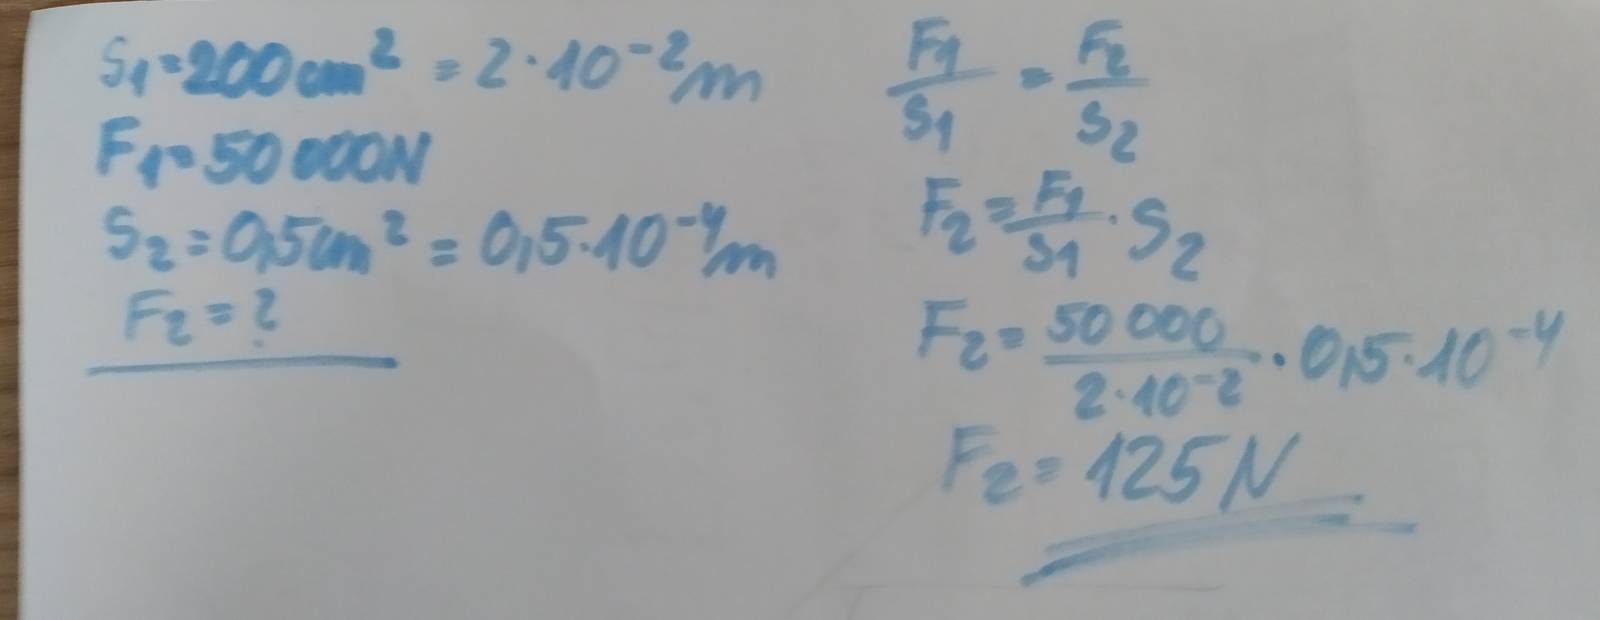 S₁=200cm² = 2·10⁻²m
F₁=50 000N
S₂=0,5cm² = 0,5·10⁻⁴m
F₂=?
F₁/S₁ = F₂/S₂
F₂=F₁/S₁·S₂
F₂=50 000/2·10⁻²·0,5·10⁻⁴
F₂=125N